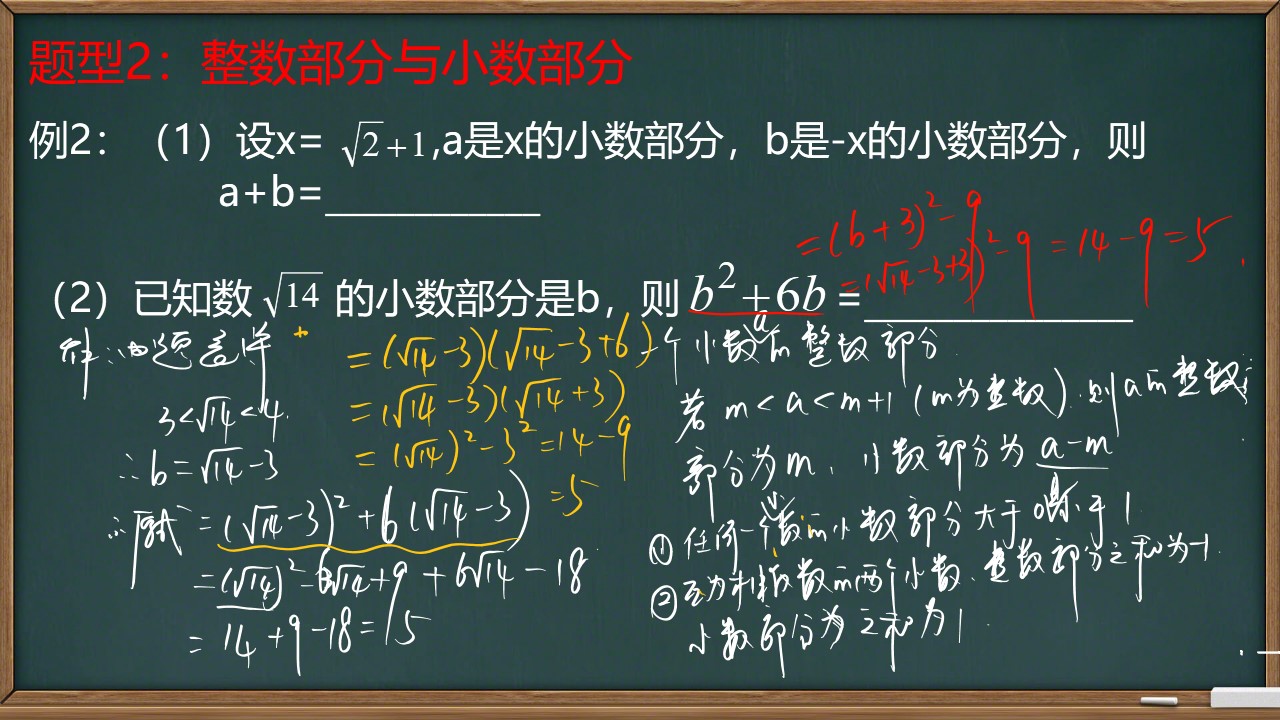 题型2：整数部分与小数部分
例2：（1）设x= √2+1,a是x的小数部分，b是-x的小数部分，则
a+b=____________
=(b+3)²-9
=(√14-3+3)²-9=14-9=5
（2）已知数 √14 的小数部分是b，则 b²+6b =_______________
解:由题意得
3<√14<4.
∴b=√14-3
∴原式=(√14-3)²+6(√14-3)
=(√14)²-6√14+9+6√14-18
=14+9-18=5
=(√14-3)(√14-3+6)
=(√14-3)(√14+3)
=(√14)²-3²=14-9
=5
一个小数a的整数部分
若m<a<m+1(m为整数).则a的整数
部分为m,小数部分为a-m
①任何一个小数的小数部分大于0 小于1
②互为相反数的两个小数.整数部分之和为-1.
小数部分为之和为1.